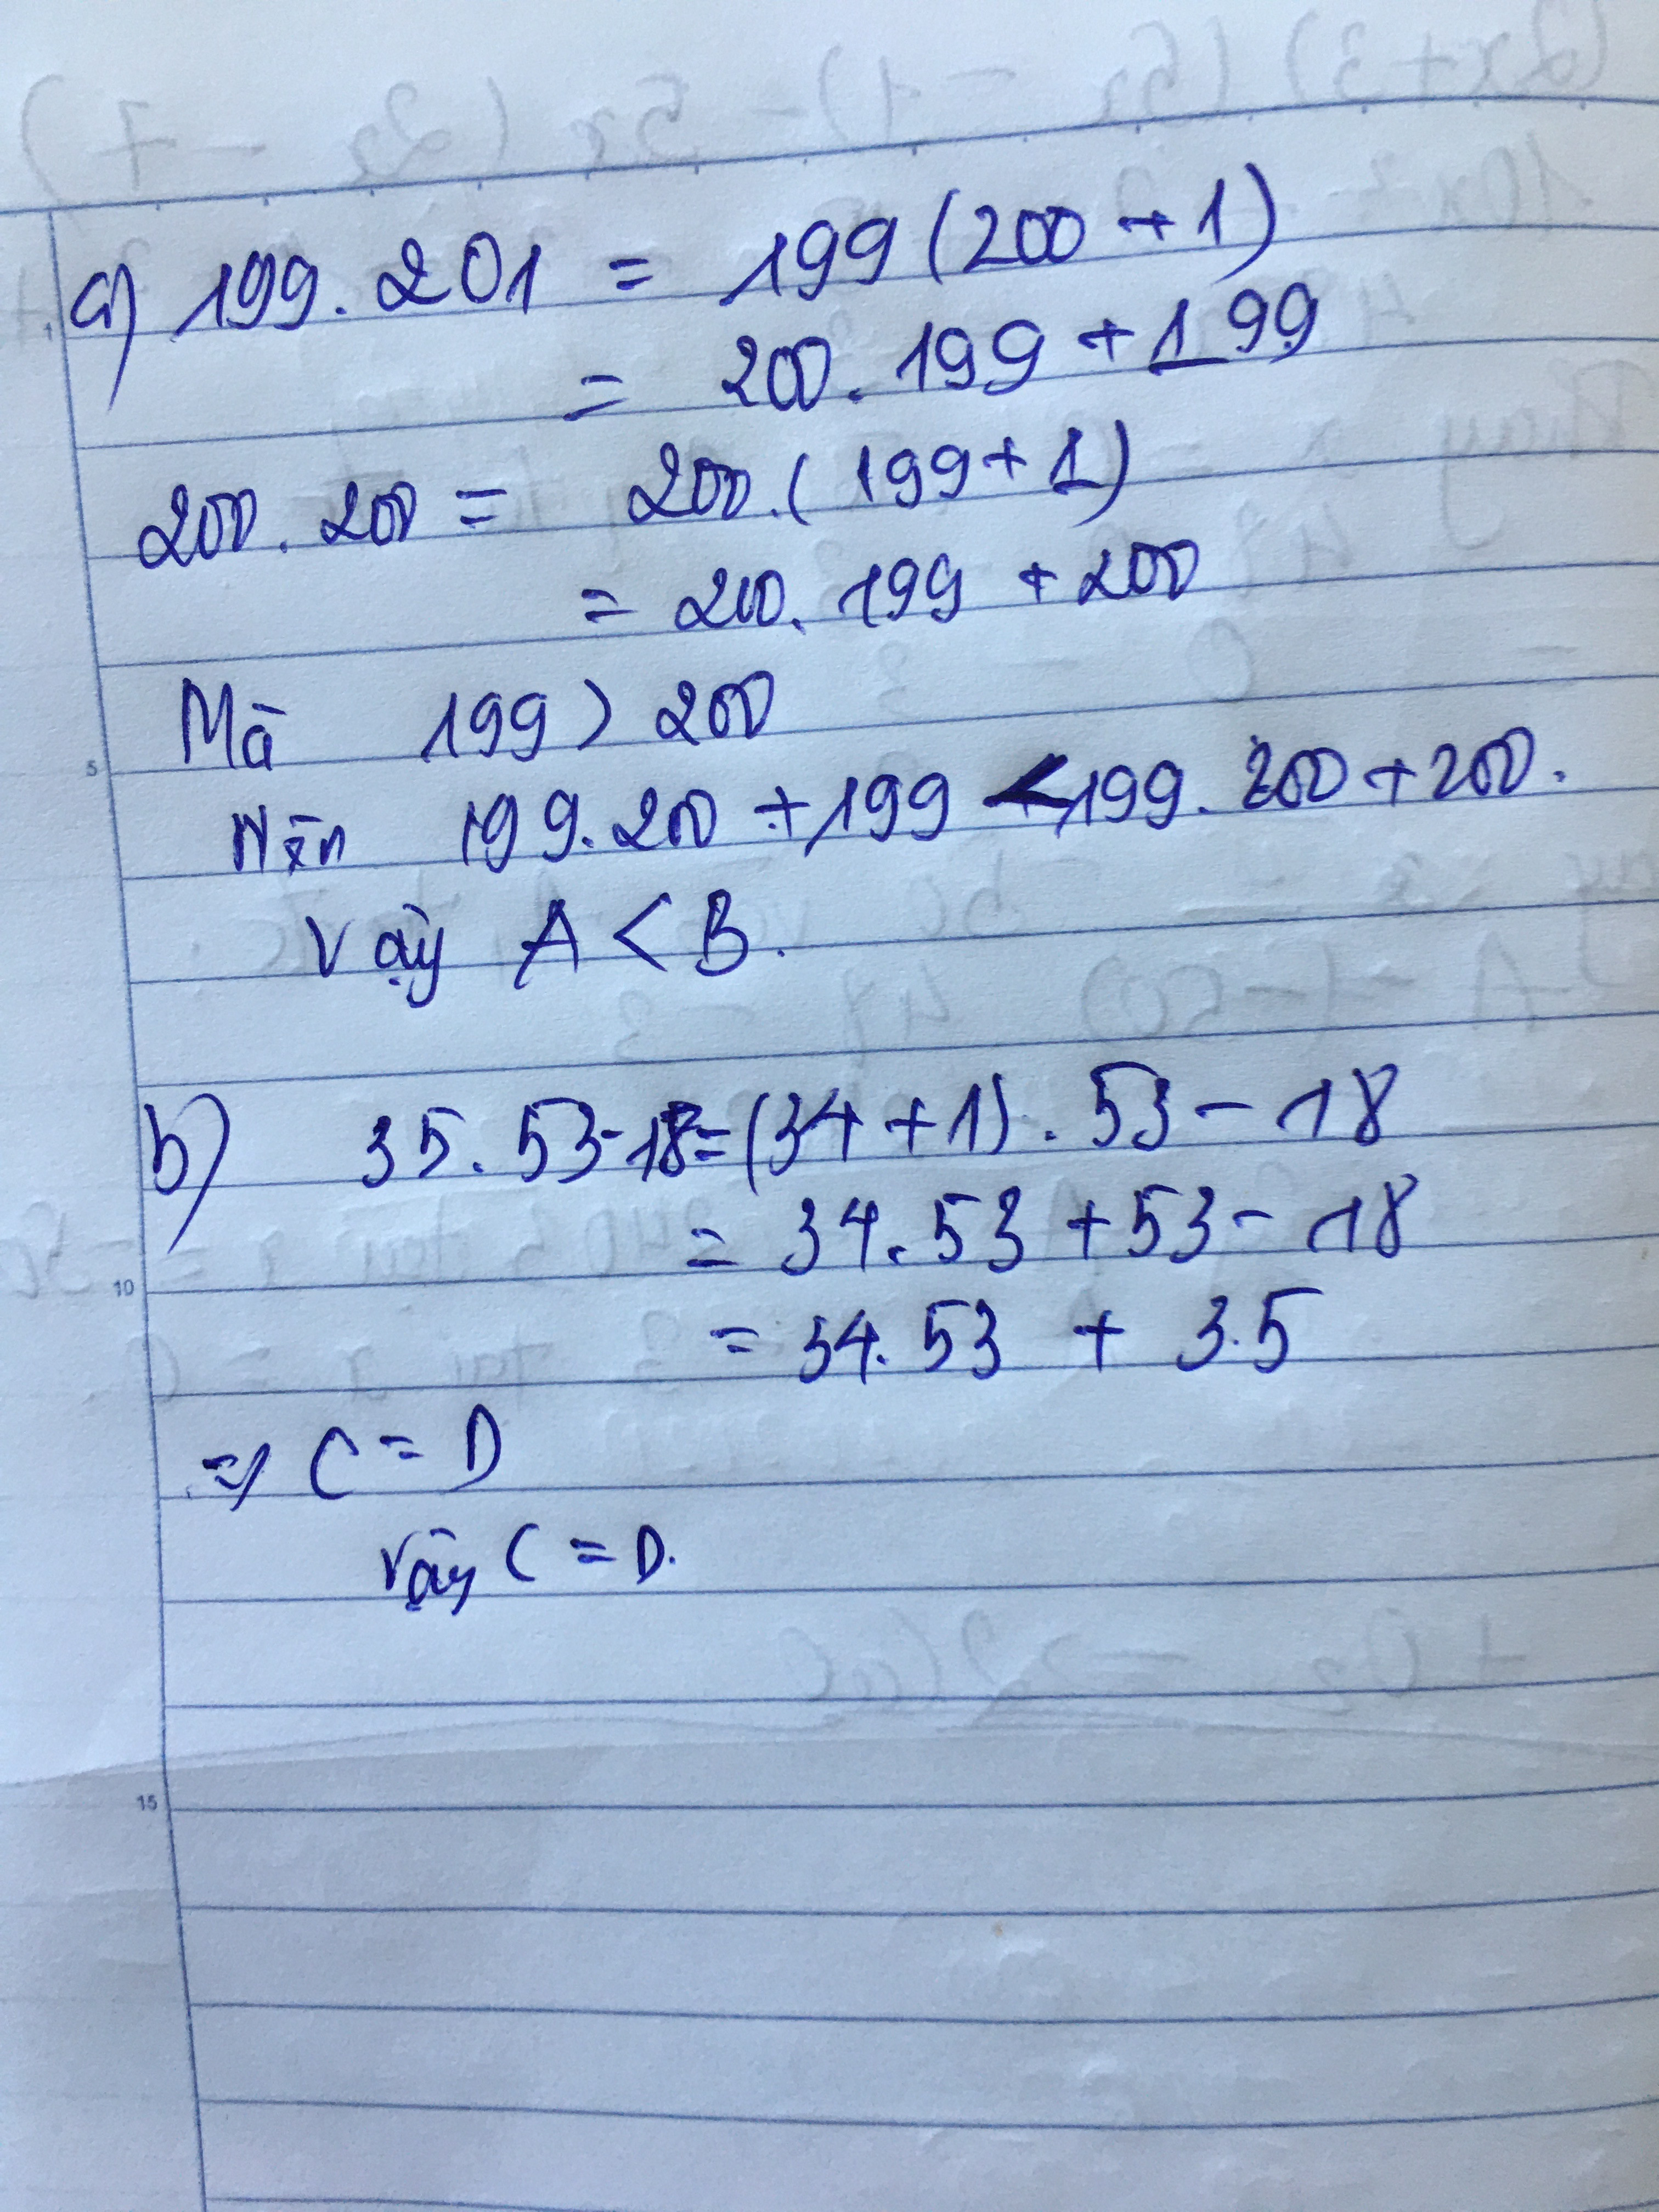 a) 199.201 = 199(200+1)
= 200.199+199
200.200 = 200.(199+1)
= 200.199+200
Mà 199>200
Nên 199.200+199<199.200+200.
Vậy A<B.
5
b) 35.53-18=(34+1).53-18
= 34.53+53-18
10
= 34.53 + 3.5
=> C=D
Vậy C=D.
15